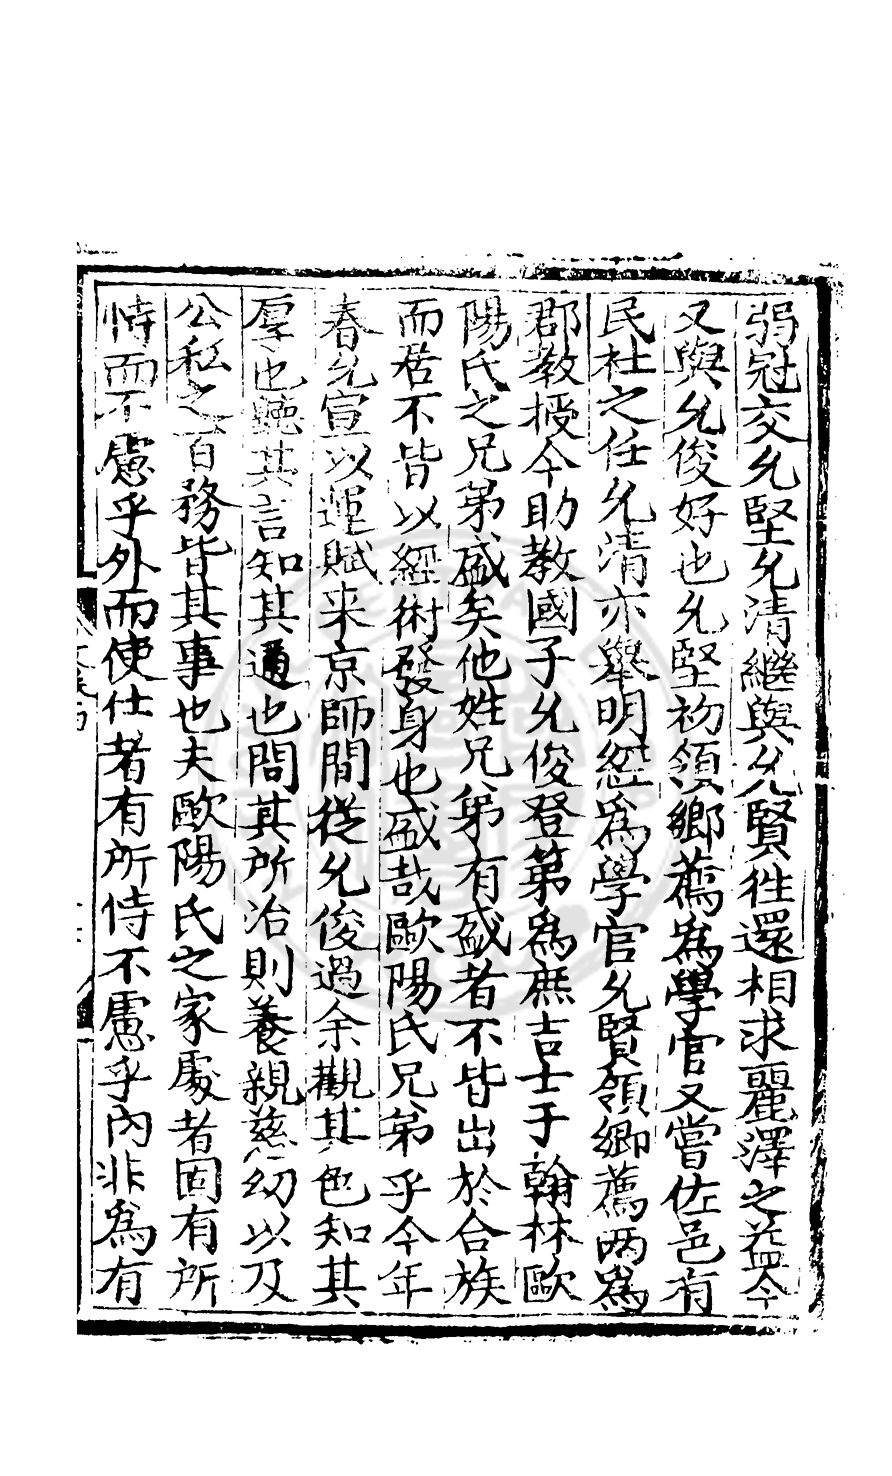 弱冠交允堅允清繼與允賢徃還相求麗澤之益今
又與允俊好也允堅初領鄉薦為學官又嘗佐邑有
民社之任允清亦舉明經為學官允賢領鄉薦两為
郡教授今助教國子允俊登第為庶吉士于翰林歐
陽氏之兄弟盛矣他姓兄弟有盛者不皆出於合族
而居不皆以經術發身也盛哉歐陽氏兄弟乎今年
春允宣以運賦来京師間從允俊過余觀其色知其
厚也聽其言知其通也問其所治則養親慈幼以及
公私之百務皆其事也夫歐陽氏之家處者固有所
恃而不慮乎外而使仕者有所恃不慮乎內非為有